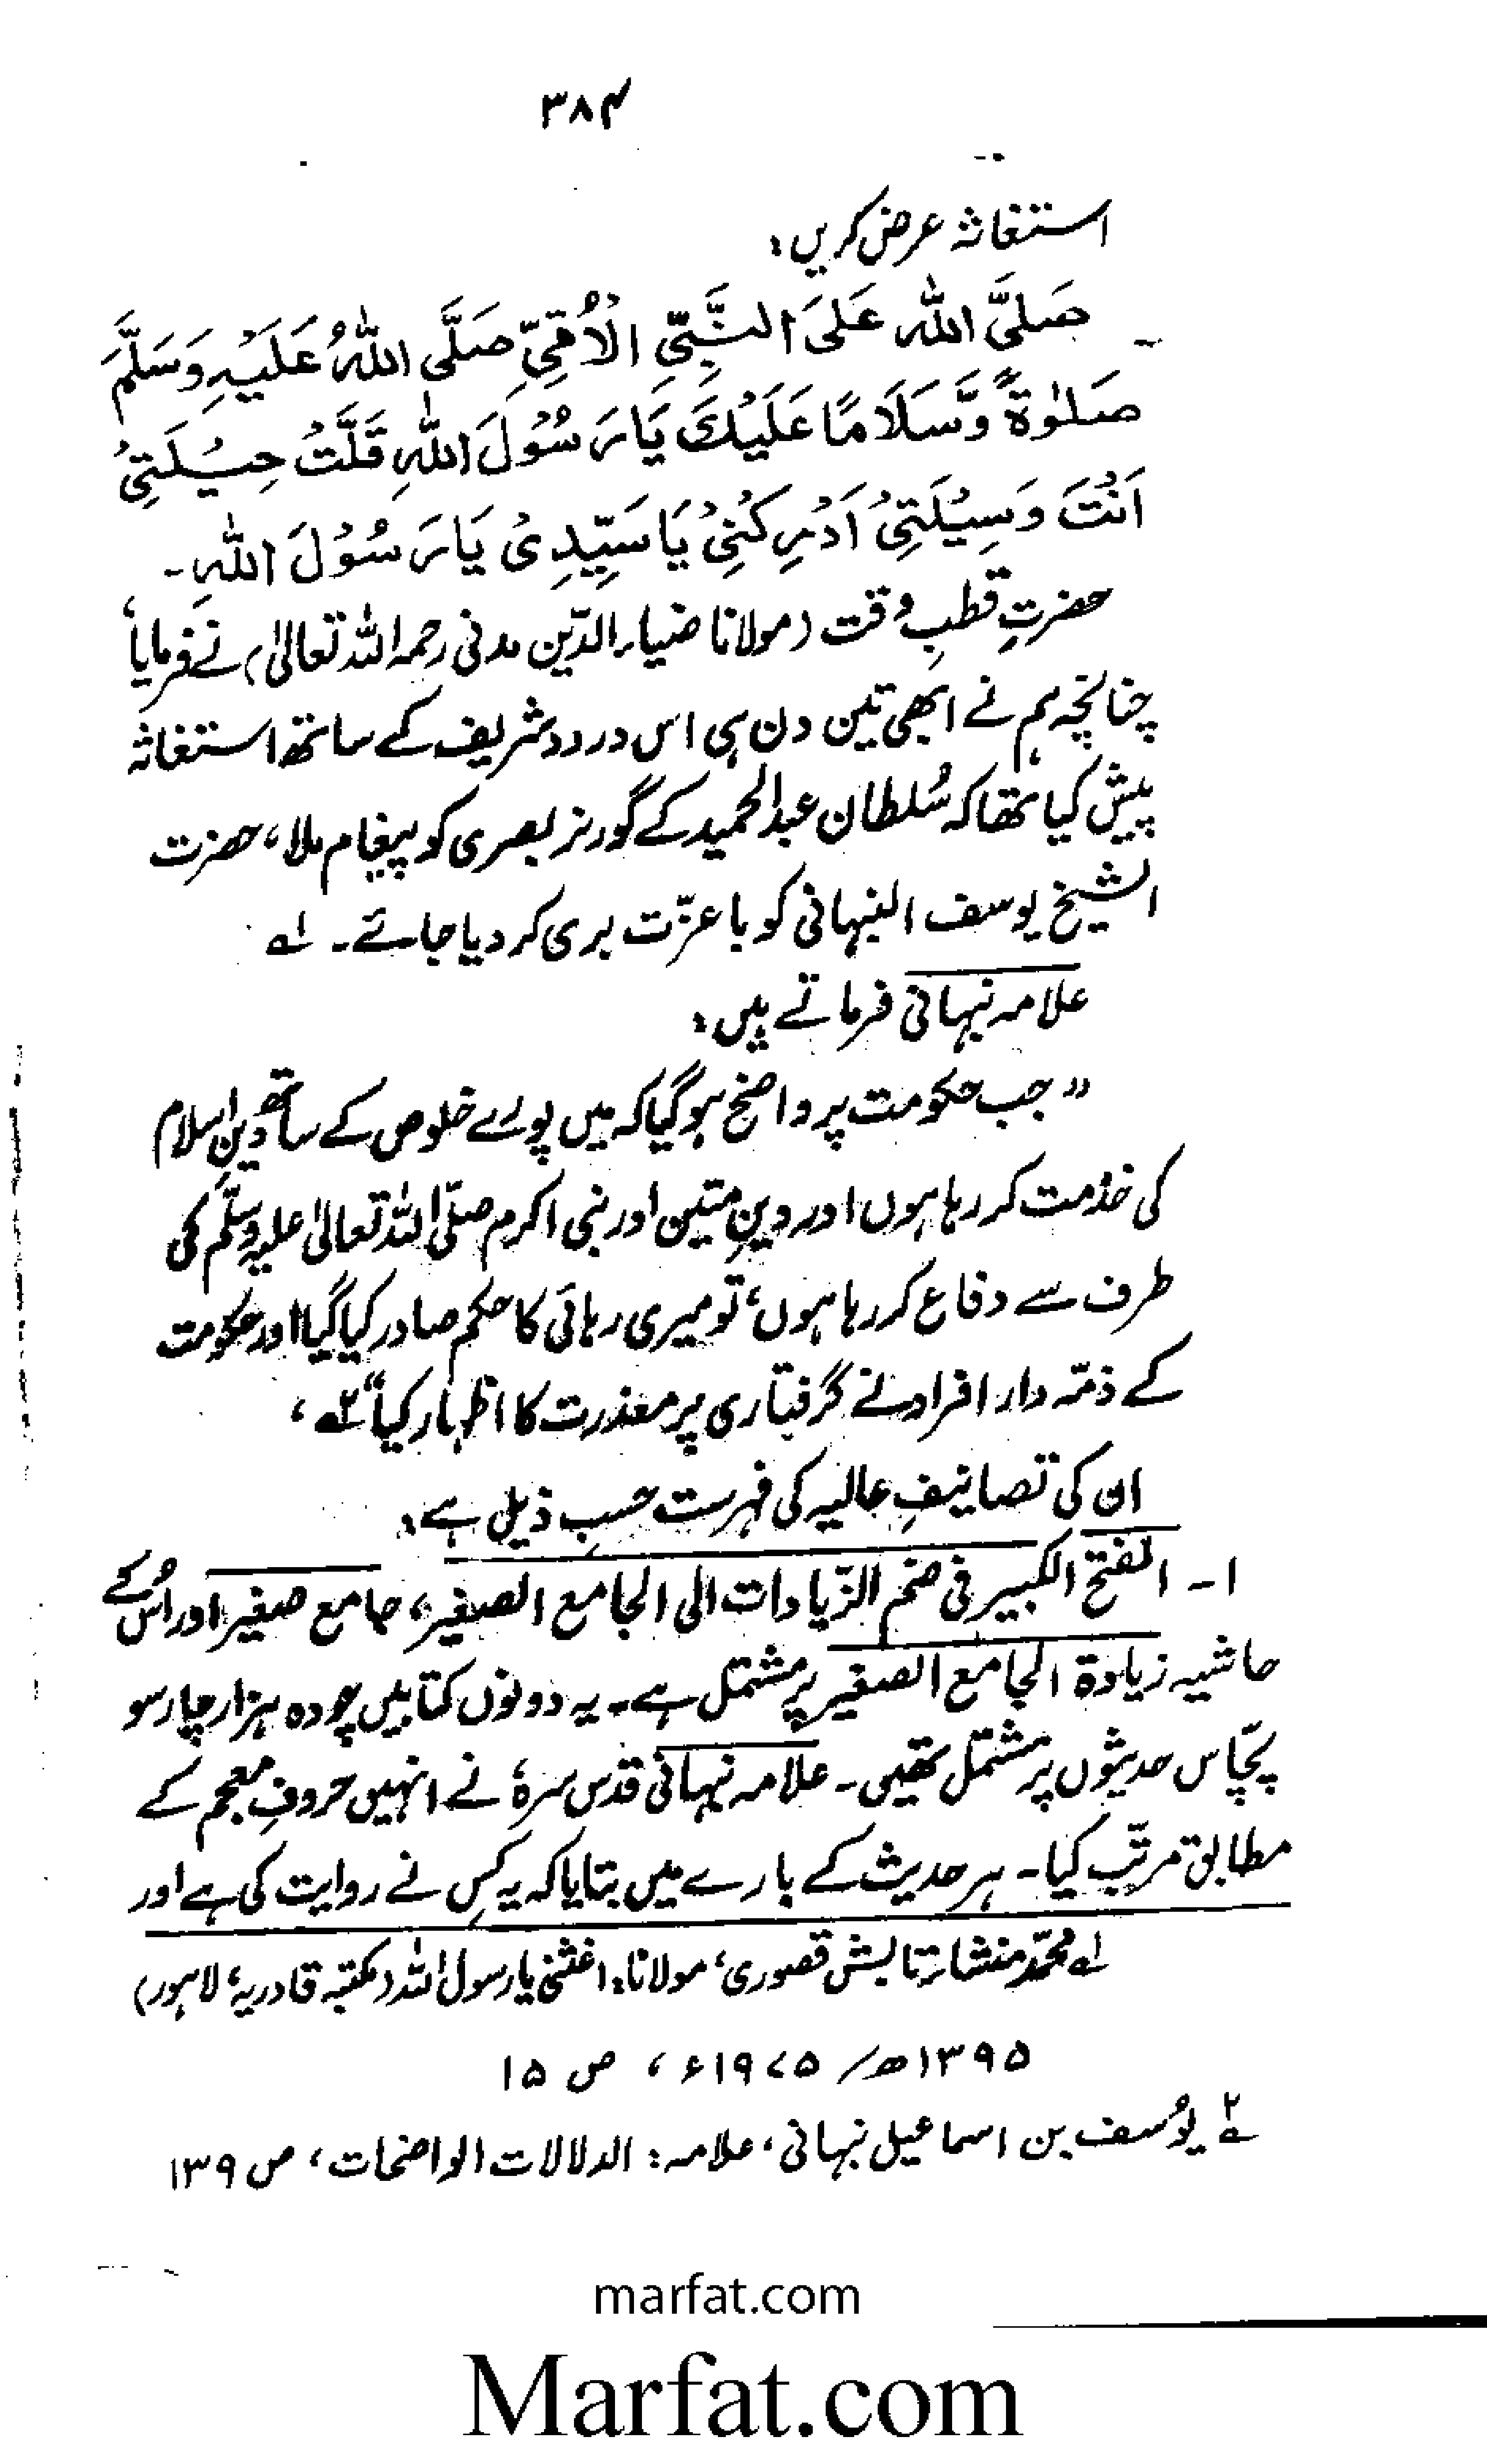 ۳۸۴
استغاثہ عرض کریں:
صَلَّی اللہ عَلَی النَّبِیِّ الْاُمِّیِّ صَلَّی اللہُ عَلَیْہِ وَسَلَّمَ
صَلٰوۃً وَّسَلَامًا عَلَیْكَ یَا رَسُوْلَ اللہِ قَلَّتْ حِیْلَتِیْ
اَنْتَ وَسِیْلَتِیْ اَدْرِکْنِیْ یَا سَیِّدِیْ یَا رَسُوْلَ اللہِ۔
حضرتِ قطبِ وقت (مولانا ضیاء الدّین مدنی رحمہ اللہ تعالیٰ) نے فرمایا،
چنانچہ ہم نے ابھی تین دن ہی اس درود شریف کے ساتھ استغاثہ
پیش کیا تھا کہ سُلطان عبدالحمید کے گورنر بصری کو پیغام ملا، حضرت
الشیخ یوسف النبہانی کو باعزّت بری کر دیا جائے۔ ۱ـ
علامہ نبہانی فرماتے ہیں:
"جب حکومت پر واضح ہو گیا کہ میں پورے خلوص کے ساتھ دینِ اسلام
کی خدمت کر رہا ہوں اور دینِ متین اور نبی اکرم صلّی اللہ تعالیٰ علیہ وسلّم کی
طرف سے دفاع کر رہا ہوں، تو میری رہائی کا حکم صادر کیا گیا اور حکومت
کے ذمّہ دار افراد نے گرفتاری پر معذرت کا اظہار کیا" ۲ـ،
ان کی تصانیفِ عالیہ کی فہرست حسبِ ذیل ہے:
۱۔ الفتح الکبیر فی ضم الزّیادات الی الجامع الصغیر، جامع صغیر اور اُس کے
حاشیہ زیادۃ الجامع الصغیر پر مشتمل ہے۔ یہ دونوں کتابیں چودہ ہزار چار سو
پچّاس حدیثوں پر مشتمل تھیں۔ علامہ نبہانی قدس سرہٗ نے انہیں حروفِ معجم کے
مطابق مرتّب کیا۔ ہر حدیث کے بارے میں بتایا کہ یہ کس نے روایت کی ہے اور
۱ـ محمّد منشا تابش قصوری، مولانا: اغثنی یا رسول اللہ (مکتبہ قادریہ، لاہور)
۱۳۹۵ھ/ ۱۹۷۵ء، ص ۱۵
۲ـ یوُسف بن اسماعیل نبہانی، علامہ: الدلالات الواضحات، ص ۱۳۹
marfat.com
Marfat.com